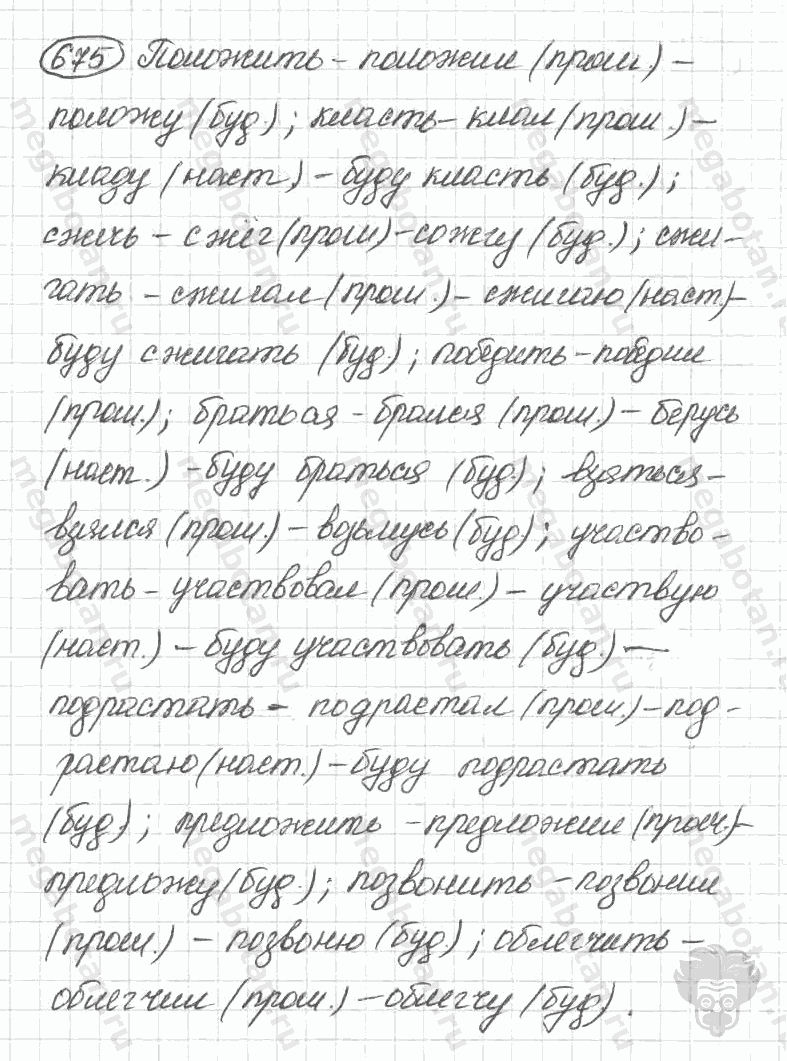 675 Положить – положил (прош.) –
положу (буд.); класть – клал (прош.) –
кладу (наст.) – буду класть (буд.);
сжечь – сжёг (прош) – сожгу (буд.); сжи-
гать – сжигал (прош.) – сжигаю (наст.) –
буду сжигать (буд.); победить – победил
(прош.); браться – брался (прош.) – берусь
(наст.) – буду браться (буд.); взяться –
взялся (прош.) – возьмусь (буд); участво-
вать – участвовал (прош.) – участвую
(наст.) – буду участвовать (буд.) —
подрастать – подрастал (прош.) – под-
растаю (наст.) – буду подрастать
(буд.); предложить – предложил (прош.) –
предложу (буд.); позвонить – позвонил
(прош.) – позвоню (буд.); облегчить –
облегчил (прош.) – облегчу (буд).
megabotan.ru